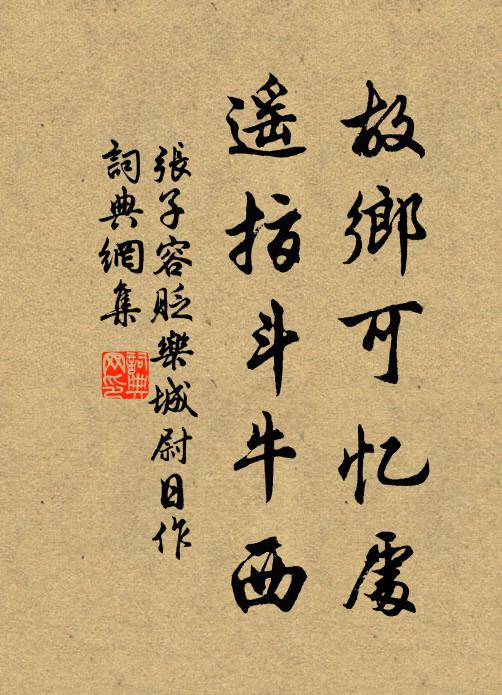 故鄉可忆處
遥指斗牛西
張子容貶樂城尉日作
詞典網集
詞典网印